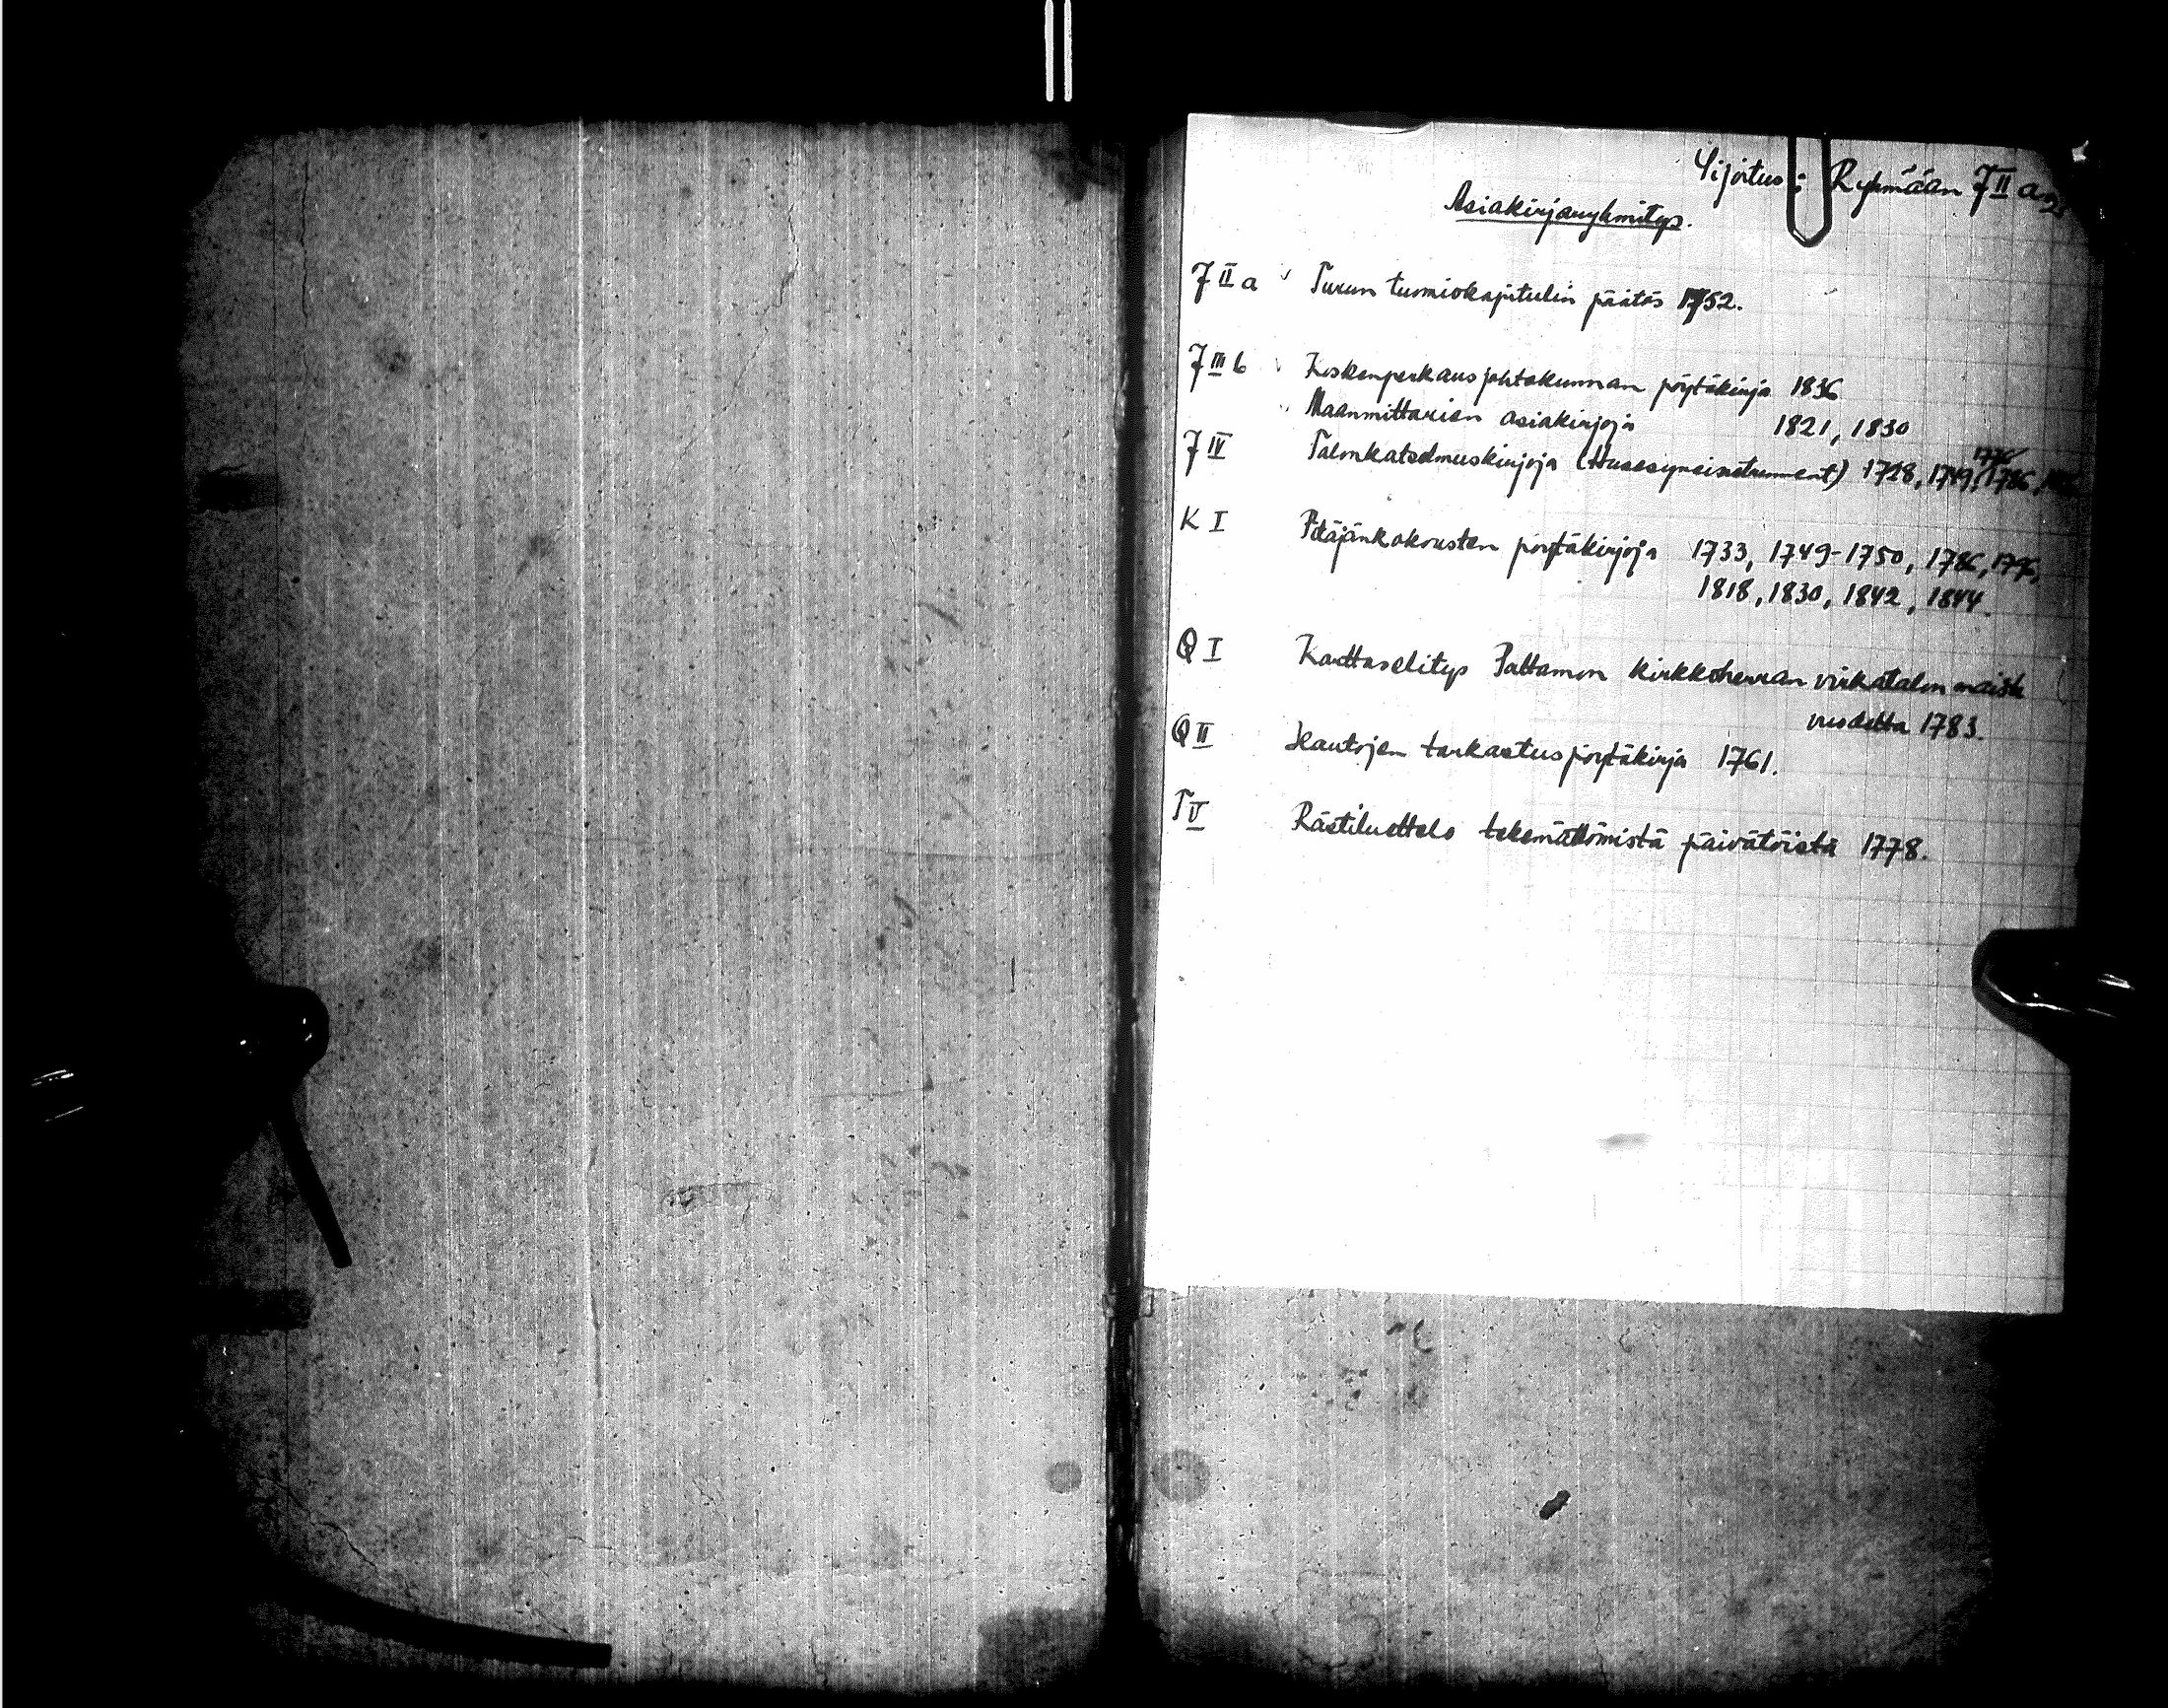 Sijoitus: Ryhmään J II a
Asiakirjaryhmitys.
J II a Turun tuomiokapitulin päätös 1752.
J III b Koskenperkausjohtokunnan pöytäkirja 1836
Maanmittarien asiakirjoja 1821, 1830
J IV Talonkatselmuskirjoja (Husesynsinstrument) 1728, 1749, 1786,
K I Pitäjänkokousten pöytäkirjoja 1733, 1749-1750, 1786, 1796,
1818, 1830, 1842, 1844.
Q I Karttaselitys Paltamon kirkkoherran virkatalon maista
vuodelta 1783.
Q II Hautojen tarkastuspöytäkirja 1761.
T V Rästiluettelo tekemättömistä päivätöistä 1778.